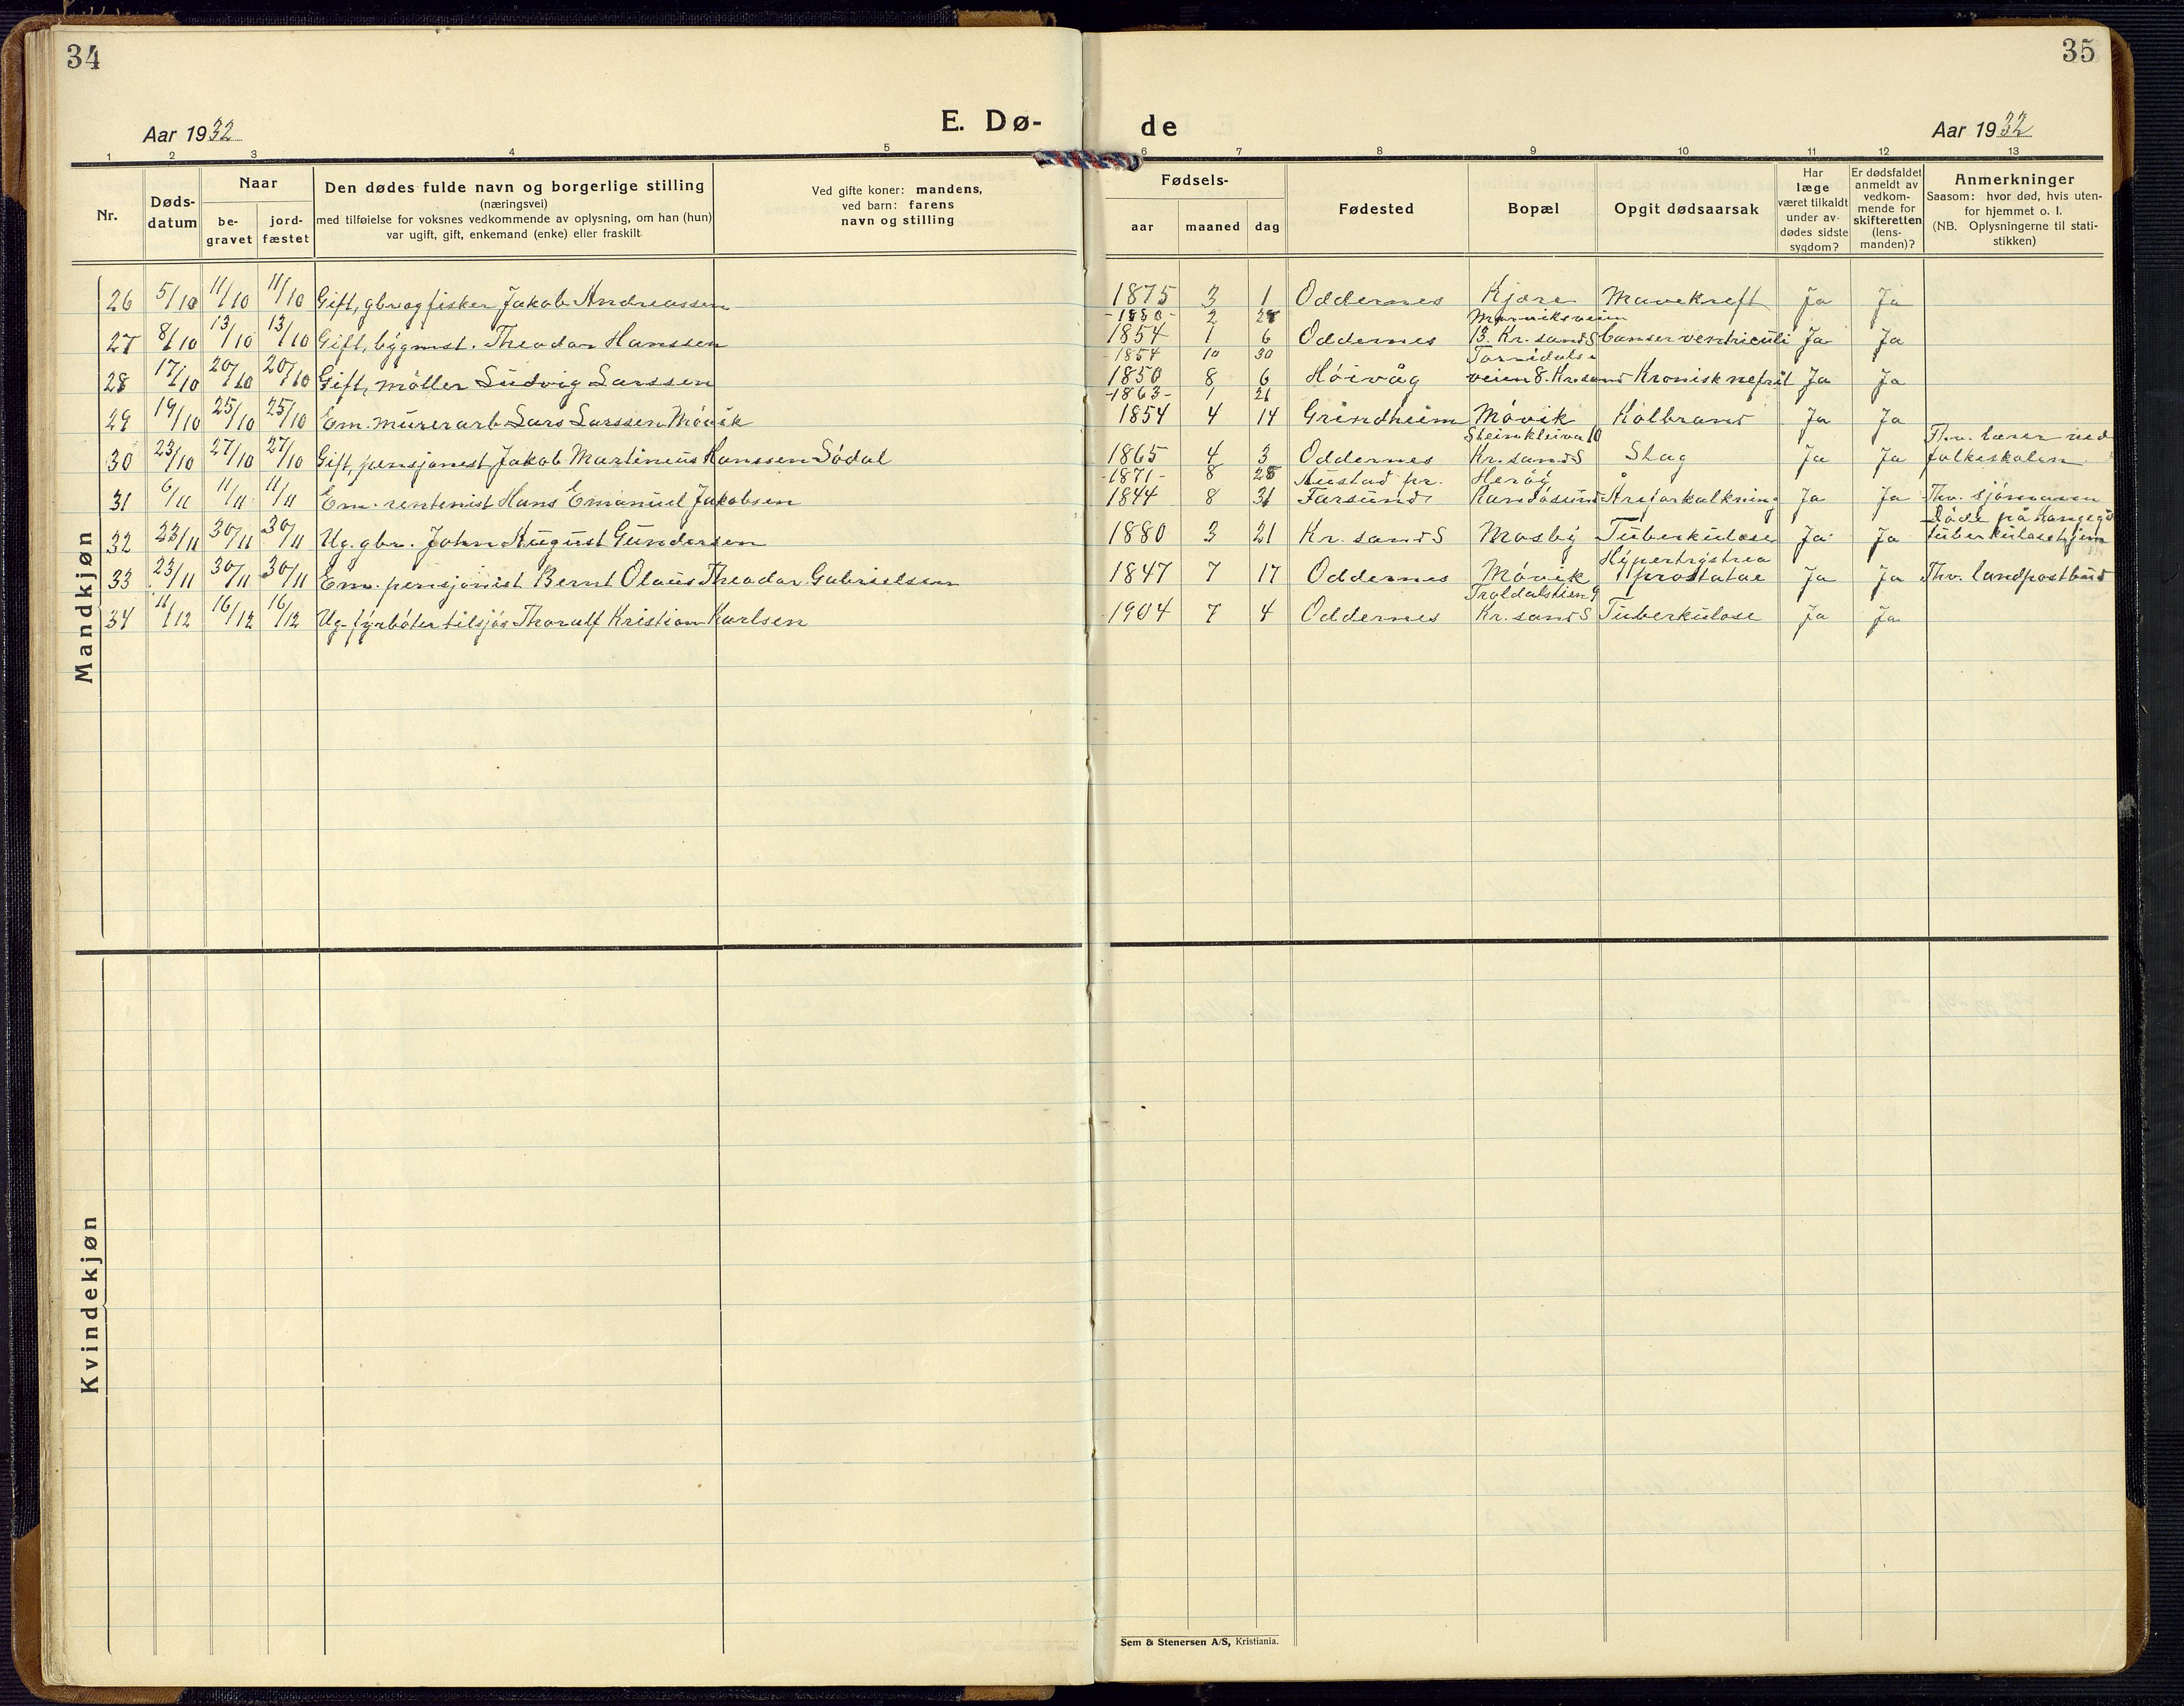 34
35
Aar 1932
E. Dø-
de
Aar 1932
1 2 3 4 5 6 7 8 9 10 11 12 13
Nr.
Døds-
datum
Naar
be-
gravet
jord-
fæstet
Den dødes fulde navn og borgerlige stilling
(næringsvei)
med tilføielse for voksnes vedkommende av oplysning, om han (hun)
var ugift, gift, enkemand (enke) eller fraskilt
Ved gifte koner: mandens,
ved barn: farens
navn og stilling
Fødsels-
aar maaned dag
Fødested
Bopæl
Opgit dødsaarsak
Har
læge
været tilkaldt
under av-
dødes sidste
sygdom?
Er dødsfaldet
anmeldt av
vedkom-
mende for
skifteretten
(lens-
manden)?
Anmerkninger
Saasom: hvor død, hvis uten-
for hjemmet o. l.
(NB. Oplysningerne til stati-
stikken)
Mandkjøn
26 5/10 11/10 11/10 Gift, gbr. og fisker Jakob Andreassen 1875 3 1 Oddernes Kjære Mavekreft Ja Ja
-1850- 2 28
27 8/10 13/10 13/10 Gift, bygmst. Theodor Hanssen 1854 1 6 Oddernes 13. Kr.sand S Canser ventriculi Ja Ja
-1854 10 30
28 17/10 20/10 20/10 Gift, möller Ludvig Larssen 1850 8 6 Höivåg veien 8. Kr.sand Kronisk nefrit Ja Ja
-1863- 1 21
29 19/10 25/10 25/10 Em. murerarb. Lars Larssen Mövik 1854 4 14 Grindheim Mövik Kolbrand Ja Ja
Steinkleiva 10 Thv. lærer ved
30 23/10 27/10 27/10 Gift, pensjonist Jakob Martinius Hanssen Södal 1865 4 3 Oddernes Kr.sand S Slag Ja Ja folkeskolen
-1871- 8 28 pr. Heröy
31 6/11 11/11 11/11 Em. rentenist Hans Emanuel Jakobsen 1844 8 31 Farsund Randösund Åreforkalkning Ja Ja Thv. sjömann
Döde på Kongsgd
32 23/11 30/11 30/11 Ug. gbr. John August Gundersen 1880 3 21 Kr.sand S Mosby Tuberkulose Ja Ja tuberkulosehjem
33 23/11 30/11 30/11 Em. pensjonist Bernt Olaus Theodor Gabrielsen 1847 7 17 Oddernes Mövik prostatae Ja Ja Thv. landpostbud
Traldalstien 9
34 11/12 16/12 16/12 Ug. fyrböter tilsjös Thoralf Kristian Karlsen 1904 7 4 Oddernes Kr.sand S Tuberkulose Ja Ja
Kvindekjøn
Sem & Stenersen A/S, Kristiania.